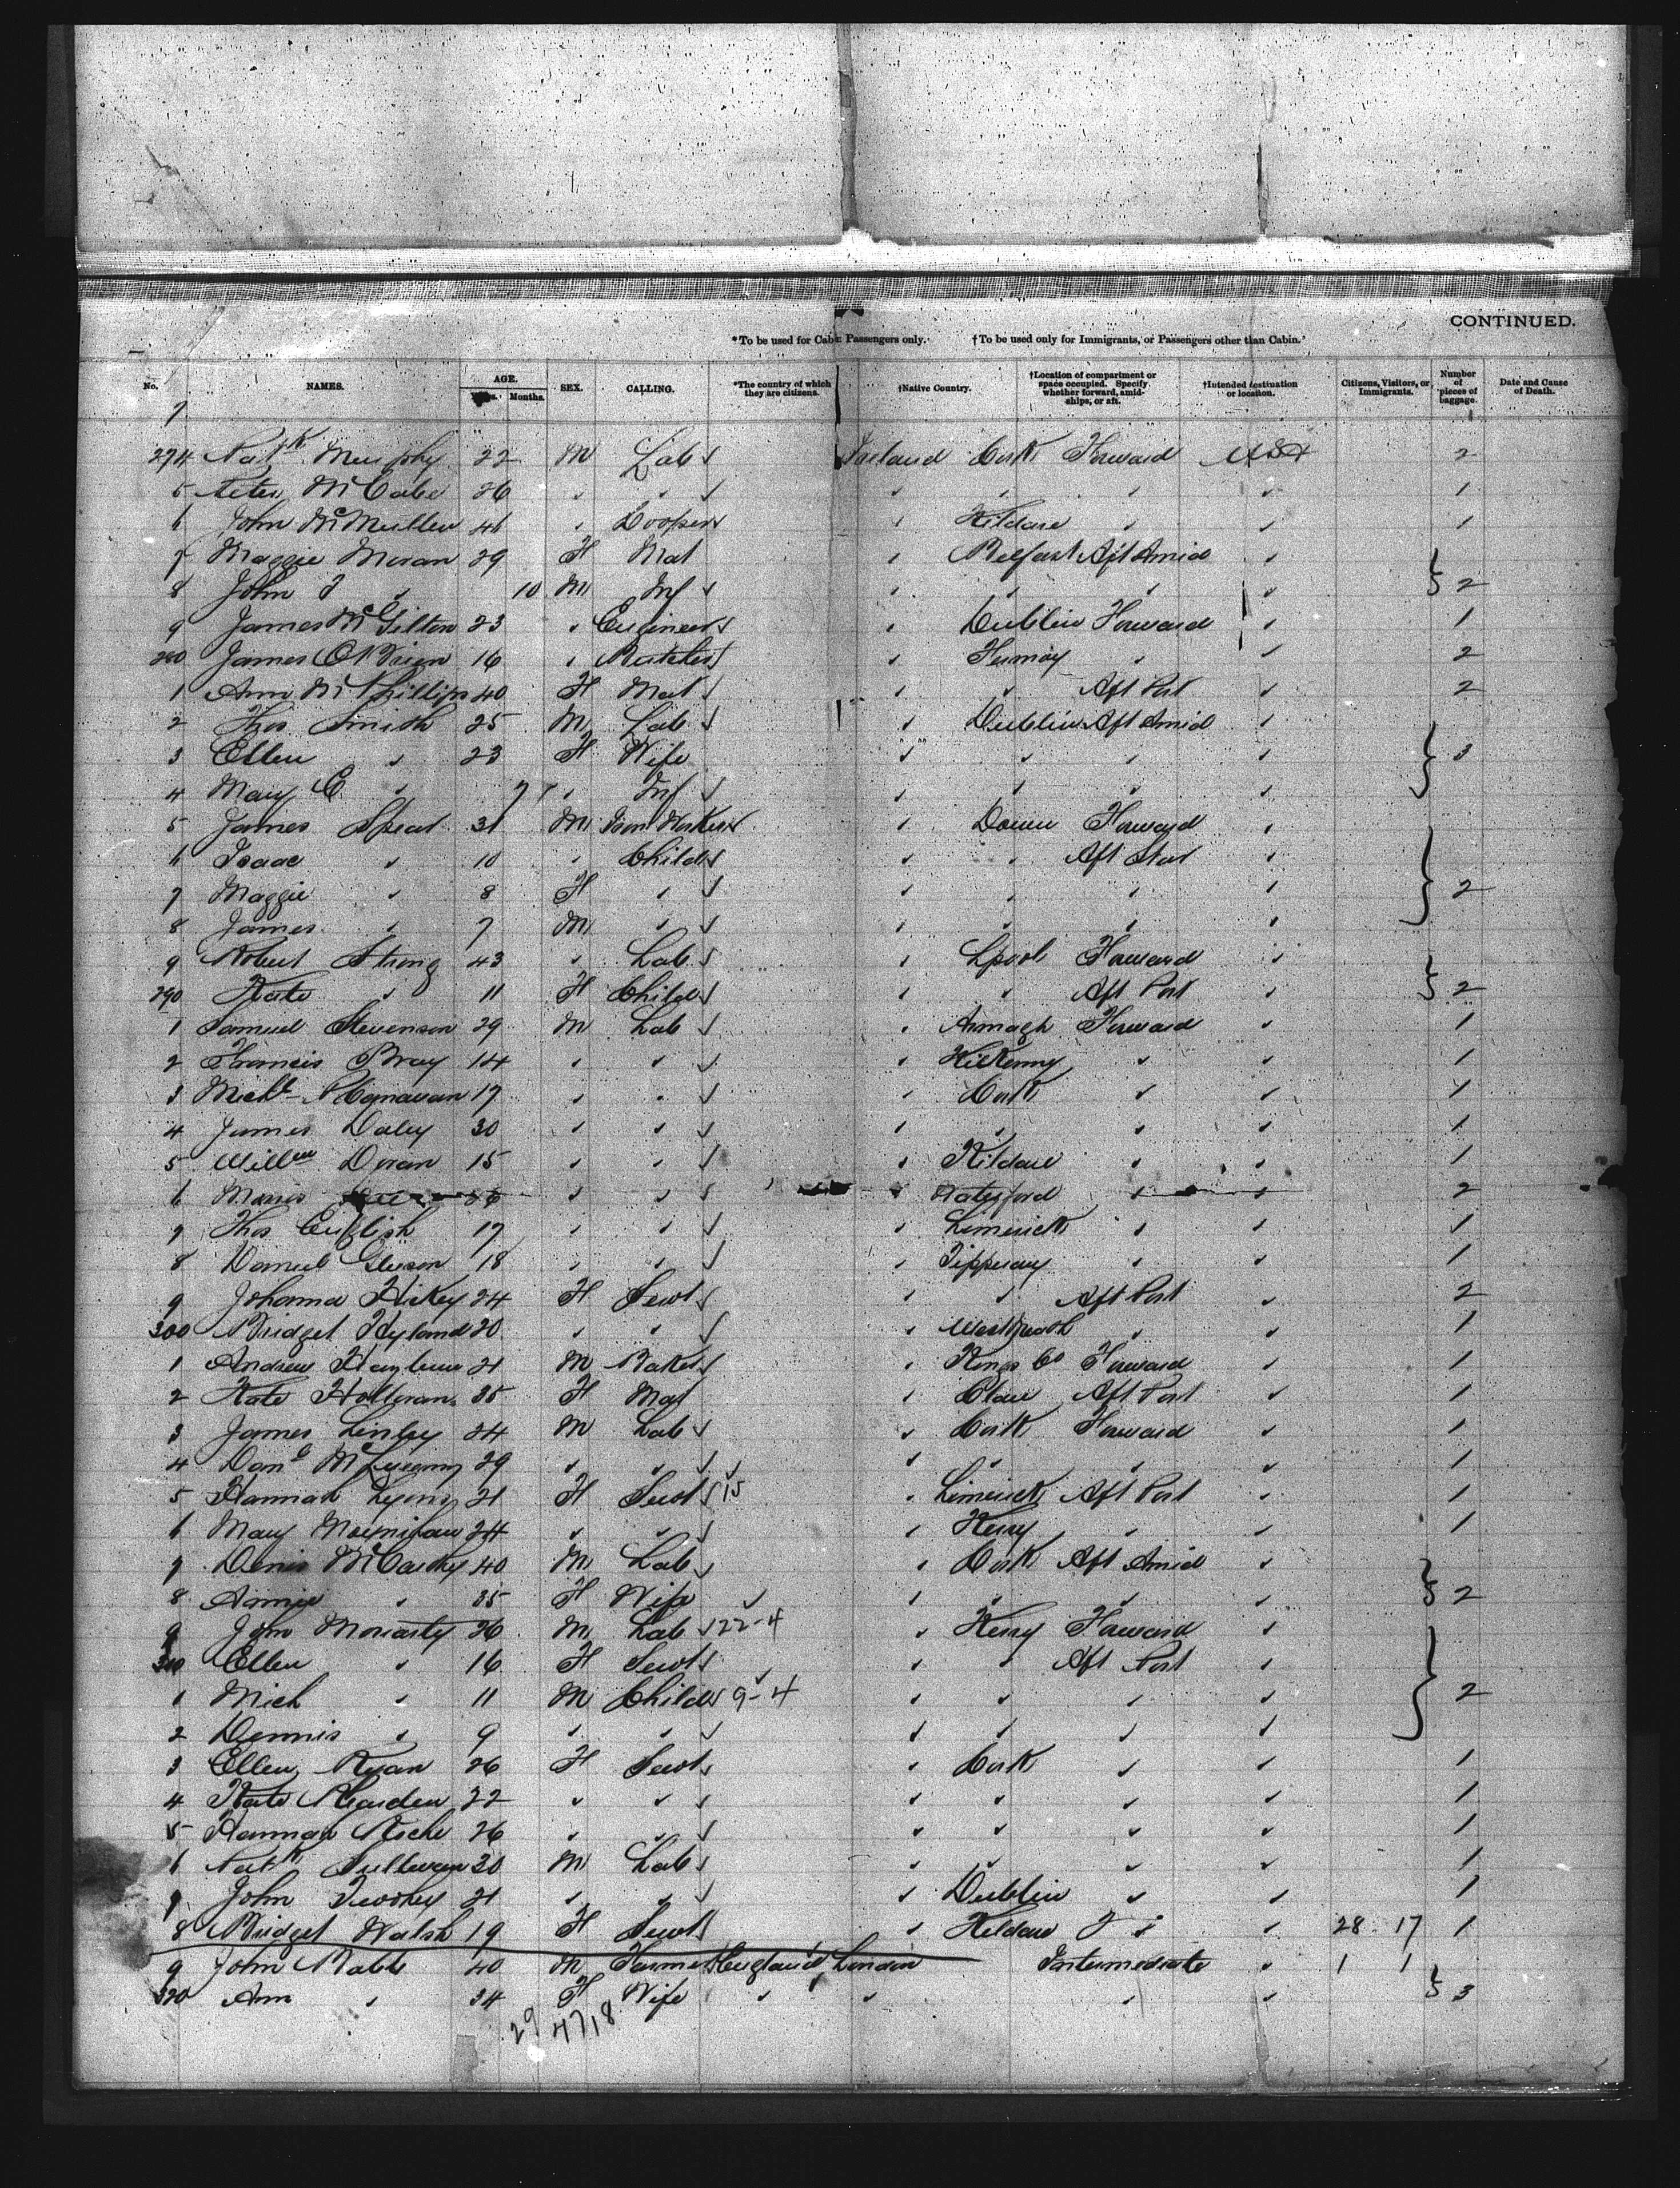 CONTINUED.
*To be used for Cabin Passengers only. †To be used only for Immigrants, or Passengers other than Cabin.
No. NAMES. AGE. Yrs. Months. SEX. CALLING. *The country of which they are citizens. †Native Country. †Location of compartment or space occupied. Specify whether forward, amidships, or aft. †Intended destination or location. Citizens, Visitors, or Immigrants. Number of pieces of baggage. Date and Cause of Death.
274 Patk Murphy 22 M Lab Ireland Cork Forward USA 2
5 Peter McCabe 26 " " " " " " 1
6 John McMullen 46 " Cooper " Kildare " " 1
7 Maggie Moran 29 F Mat " Belfast Aft Amid "
8 John J " 10 M Inf " " " " } 2
9 James McGilton 23 " Engineer " Dublin Forward " 1
280 James O'Brien 16 " Butcher " Fermoy " " 2
1 Ann McPhillips 40 F Mat " " Aft Port " 2
2 Thos Smith 25 M Lab " Dublin Aft Amid "
3 Ellen " 23 F Wife " " " " } 3
4 Mary C " 7 " Inf " " " "
5 James Spear 31 M Iron Worker " Down Forward "
6 Isaac " 10 " Child " " Aft Star "
7 Maggie " 8 F " " " " " } 2
8 James " 7 M " " " " "
9 Robert Strong 43 " Lab " Lpool Forward "
290 Kate " 11 F Child " " Aft Port " } 2
1 Samuel Stevenson 29 M Lab " Armagh Forward " 1
2 Francis Bray 14 " " " Kilkenny " " 1
3 Michl 17 " " " Cork " " 1
4 James Daley 30 " " " " " " 1
5 Willm Doran 15 " " " Kildare " " 1
6 36 " " " Waterford " " 2
7 Thos English 17 " " " Limerick " " 1
8 Daniel Gleeson 18 " " " Tipperary " " 1
9 Johanna Hickey 24 F Servt " " Aft Port " 2
300 Bridget Hyland 20 " " " Westmeath " " 1
1 Andrew 21 M Baker " Kings Co Forward " 1
2 Kate Holloran 35 F Mat " Clare Aft Port " 1
3 James Linley 24 M Lab " Cork Forward " 1
4 Danl 29 " " " " " " 1
5 Hannah Lyons 21 F Servt 15 " Limerick Aft Port " 1
6 Mary Moynihan 24 " " " Kerry " " 1
7 Denis McCarthy 40 M Lab " Cork Aft Amid "
8 Annie " 35 F Wife " " " " } 2
9 John Moriarty 26 M Lab 22-4 " Kerry Forward "
310 Ellen " 16 F Servt " " Aft Port "
1 Mich " 11 M Child 9-4 " " " " } 2
2 Dennis " 9 " " " " " "
3 Ellen Ryan 26 F Servt " Cork " " 1
4 Kate Reardon 22 " " " " " " 1
5 Hannah Roche 26 " " " " " " 1
6 Patk Sullivan 30 M Lab " " " " 1
7 John Twohey 21 " " " Dublin " " 1
8 Bridget Walsh 19 F Servt " Kildare " " 28 17 1
9 John Rabb 40 M Farmer England London Intermediate " 1 1
320 Ann " 34 F Wife " " " " } 3
29 4718